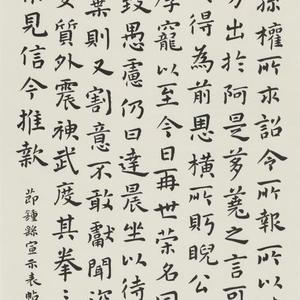 孫權所求詔令所報所以
方出於阿是芻蕘之言可
得為前恩橫所盱睨公
厚寵以至今日再世榮名同
致愚慮仍日達晨坐以待
棄則又割意不敢獻聞深
委質外震神武度其拳拳
未見信今推款
節鍾繇宣示表帖